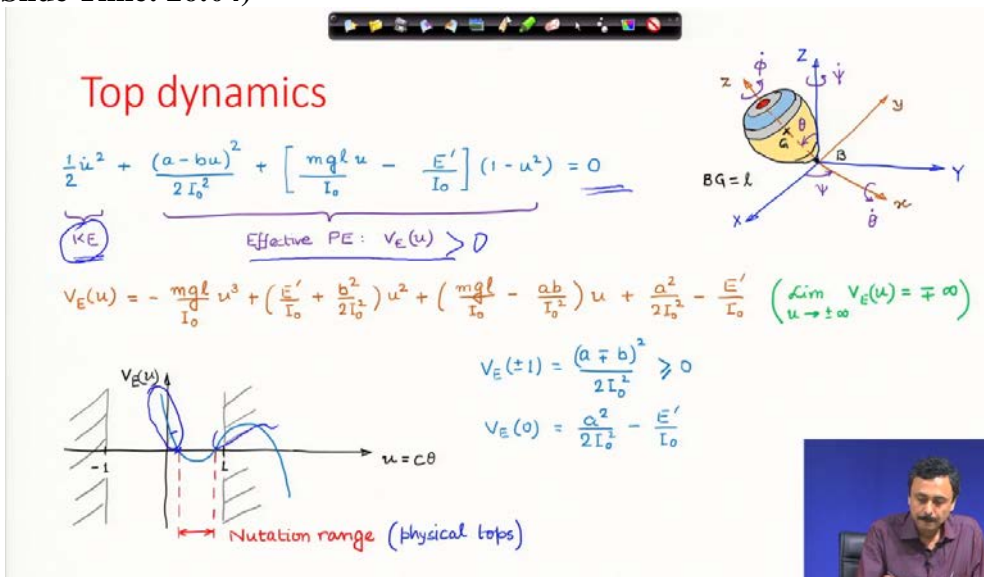 Slide Time: 28:04)
Top dynamics
½ u̇² + (a - bu)² / 2 I₀² + [ mgl u / I₀ - E′ / I₀ ] (1 - u²) = 0
KE
Effective PE : V_E(u) > 0
V_E(u) = - mgl / I₀ u³ + ( E′ / I₀ + b² / 2I₀² ) u² + ( mgl / I₀ - ab / I₀² ) u + a² / 2I₀² - E′ / I₀ ( Lim u → ±∞ V_E(u) = ∓ ∞ )
V_E(±1) = (a ∓ b)² / 2 I₀² ⩾ 0
V_E(0) = a² / 2I₀² - E′ / I₀
V_E(u)
-1
1
u = cθ
Nutation range (physical tops)
z
φ̇
Z
ψ̇
y
θ
G
B
Y
BG = l
ψ
X
x
θ̇